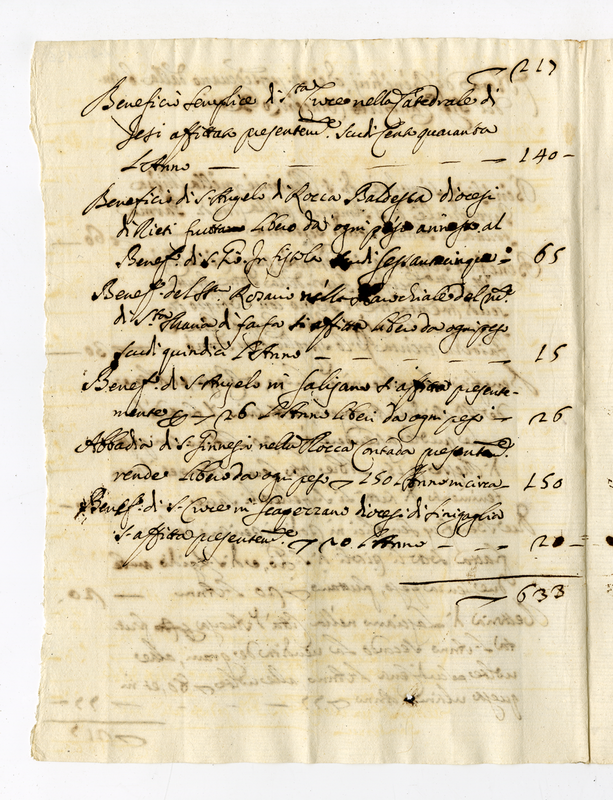 217
Beneficio semplice di S.ta Croce nella Catedrale di
Jesi affittato presentem.te scudi Cento quaranta
L'Anno — — — — 140 —
Beneficio di S. Angelo di Rocca Baldesca diocesi
di Rieti frutta libero da ogni peso annesso al
Benef.o di S. Gio. In fistola scudi sessantacinque 65
Benef.o del SS. Rosario nella Parochiale del
di S.ta Maria di farfa si affitta libero da ogni peso
scudi quindici L'Anno — — — — 15
Benef.o di S. Angelo in Salisano si affitta presente-
mente 26 L'Anno liberi da ogni peso — 26
Abbadia di S. Ginnesio nella Rocca Contrada presentem.te
rende libero da ogni peso 250 L'Anno incirca — 250
Benef.o di S. Croce in Scapezzano diocesi di Sinigaglia
s'affitta presentem.te 20 L'Anno — — — 20 —
633